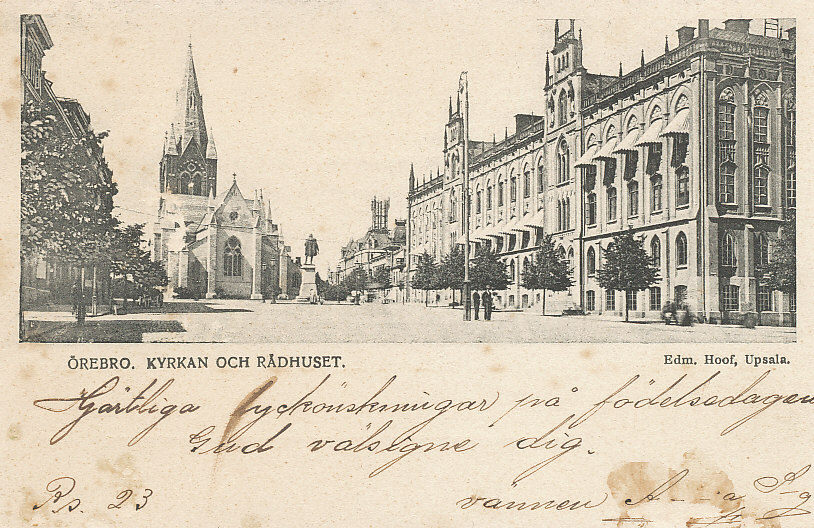 ÖREBRO. KYRKAN OCH RÅDHUSET.
Edm. Hoof, Upsala.
Hjärtliga lyckönskningar på födelsedagen
Gud välsigne dig.
Ps. 23
vännen A---a S-g